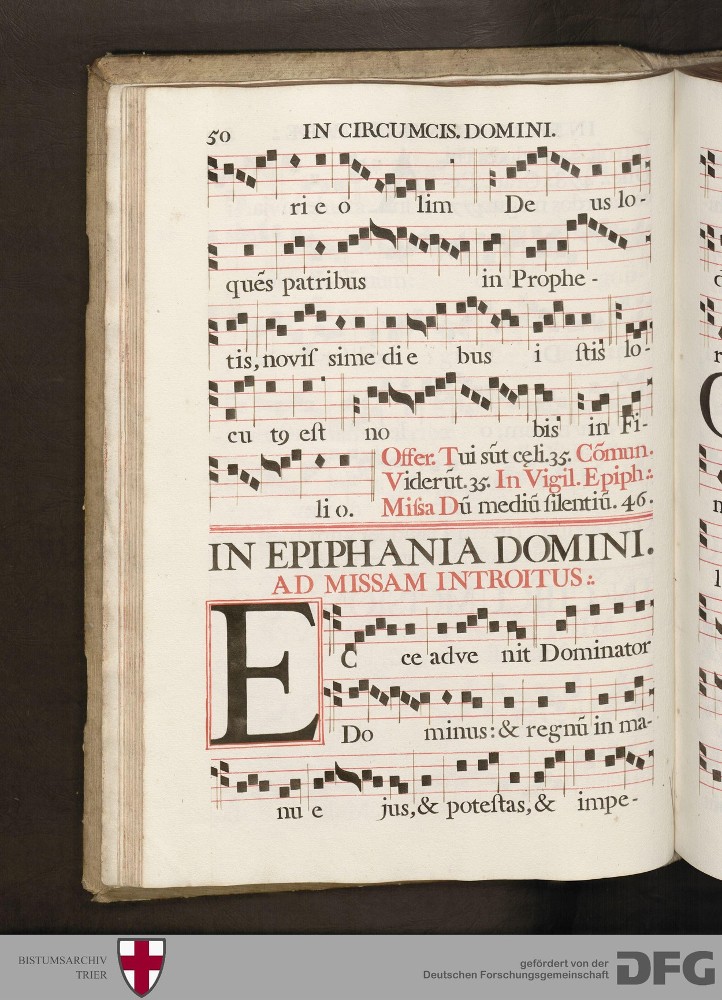 50 IN CIRCUMCIS. DOMINI.
ri e o lim De us lo-
quẽs patribus in Prophe-
tis, noviſ sime di e bus i ſtis lo-
cu tꝯ eſt no bis in Fi-
li o. Offer. Tui sũt cęli. 35. Cõmun.
Viderũt. 35. In Vigil. Epiph:.
Miſsa Dũ mediũ ſilentiũ. 46.
IN EPIPHANIA DOMINI.
AD MISSAM INTROITUS:.
EC ce adve nit Dominator
Do minus: & regnũ in ma-
nu e jus, & poteſtas, & impe-
BISTUMSARCHIV
TRIER
gefördert von der
Deutschen Forschungsgemeinschaft
DFG